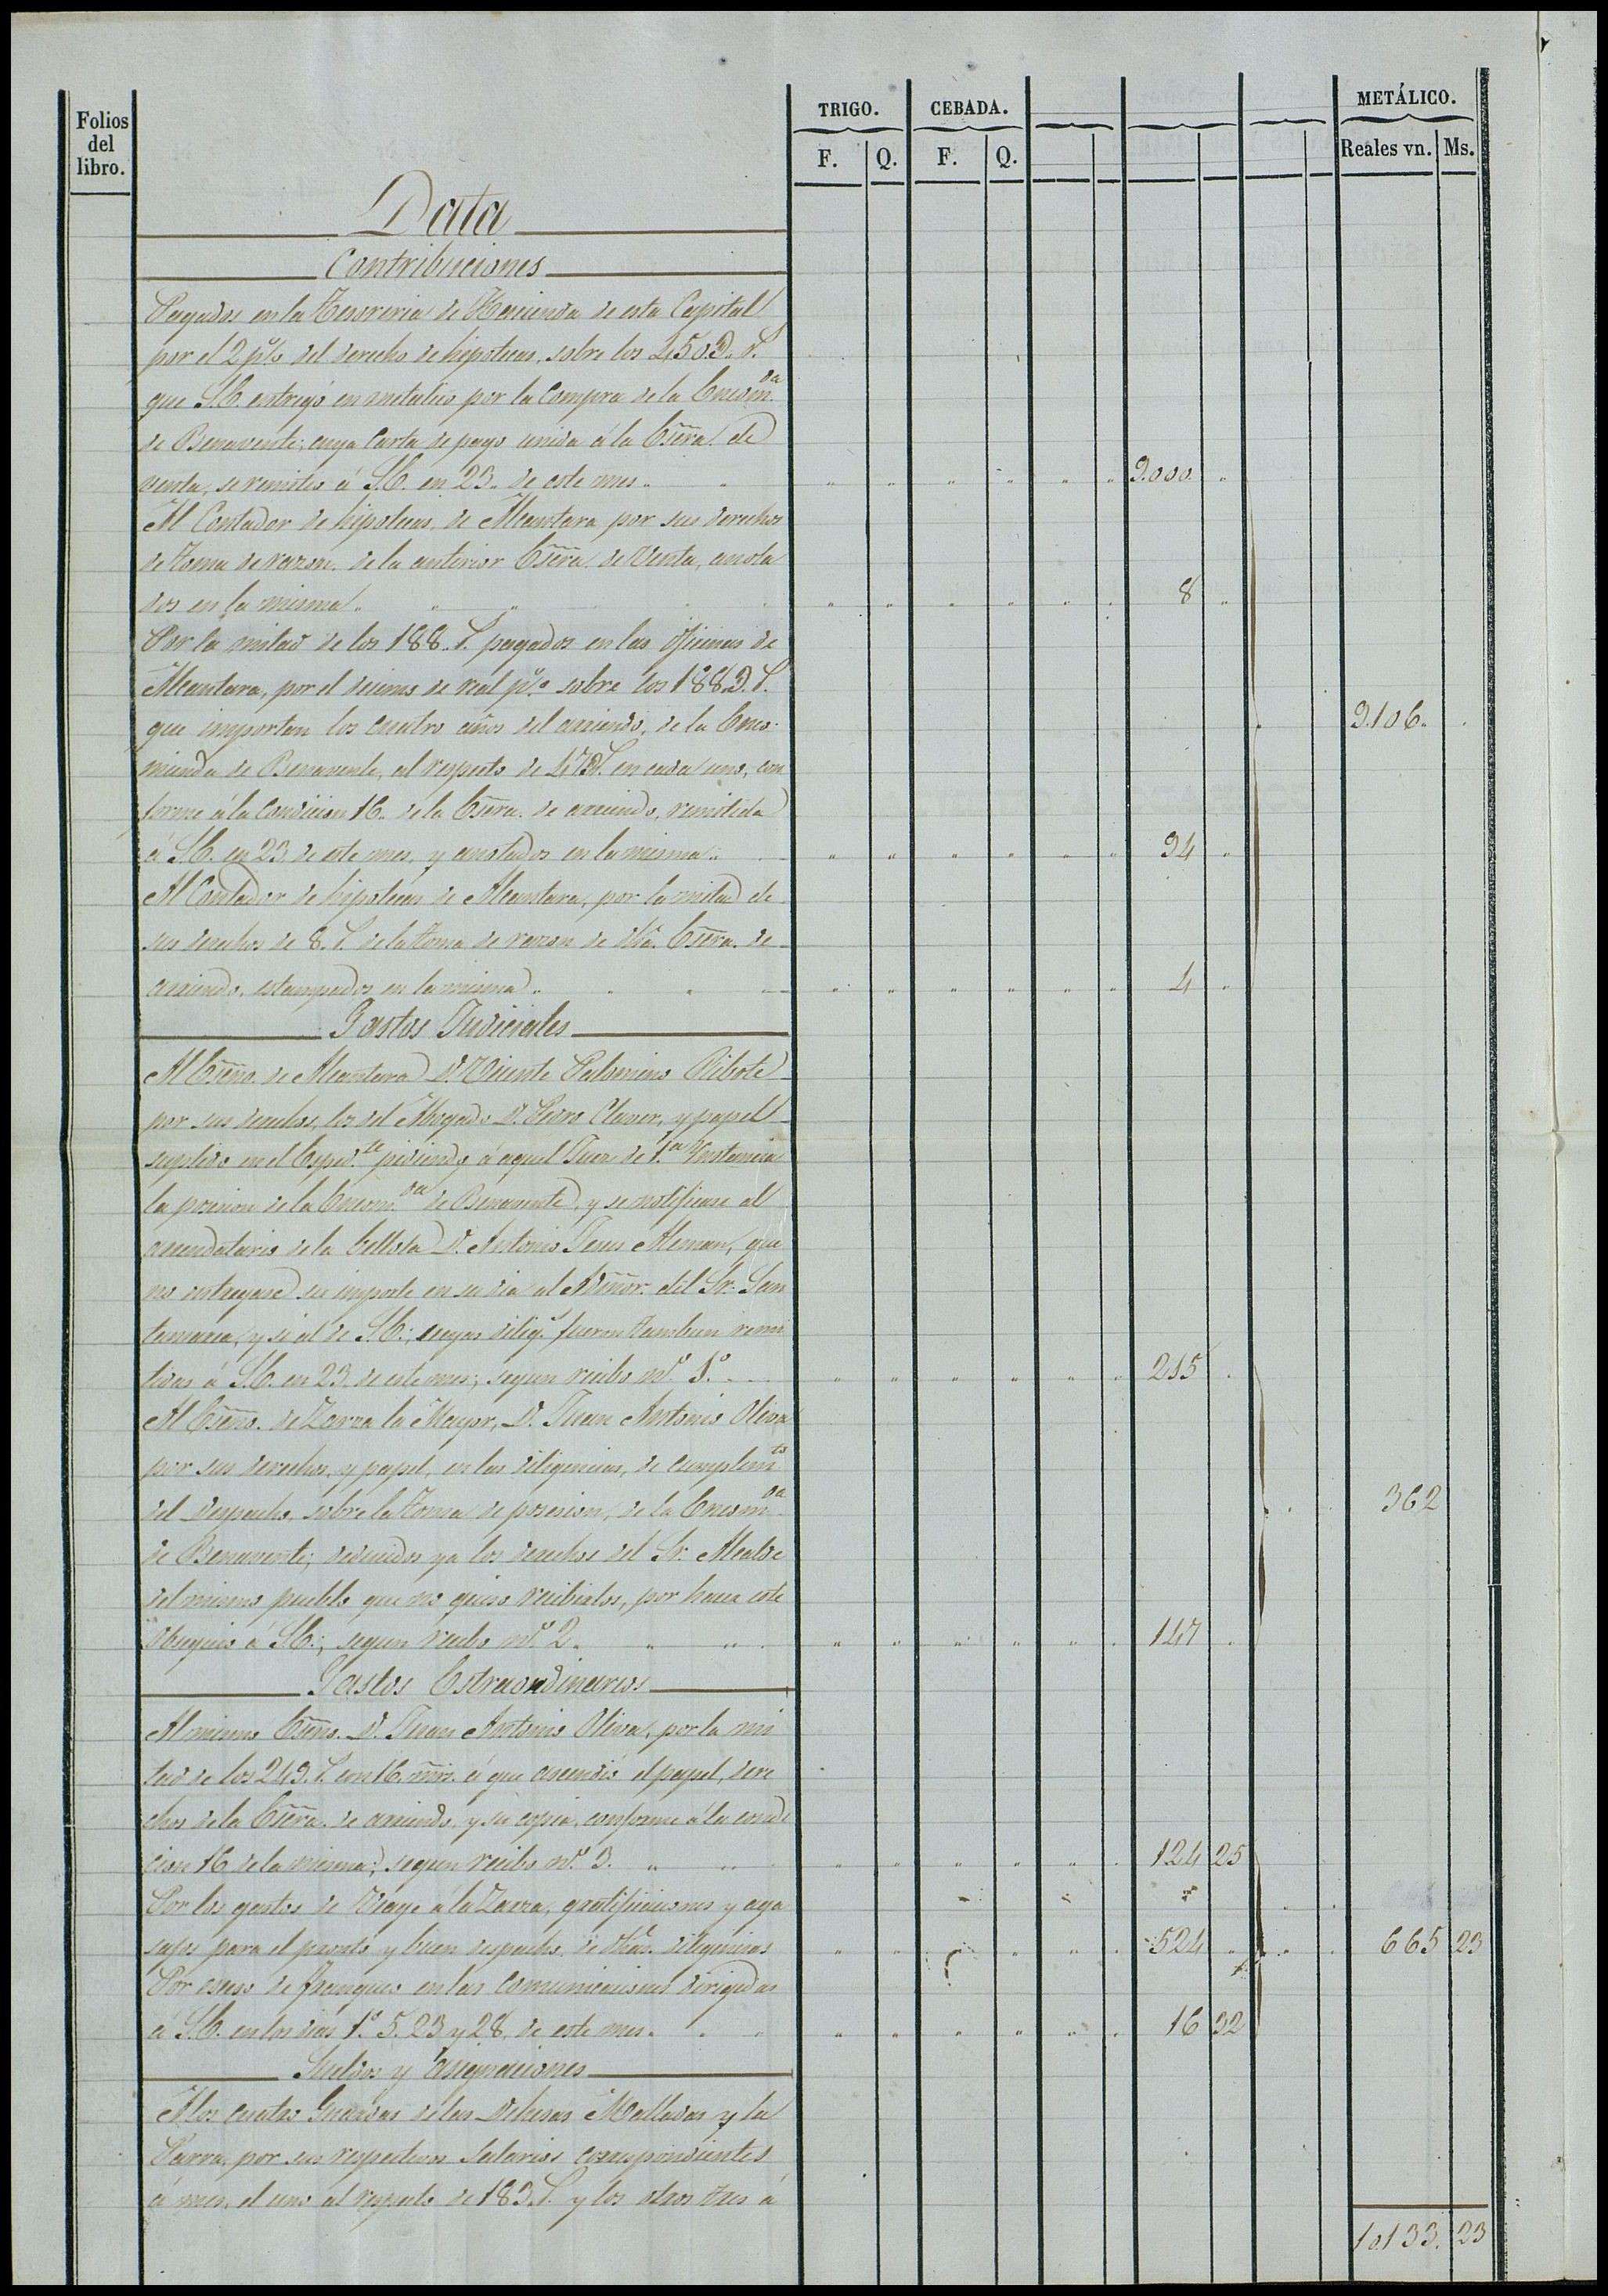 Folios del libro.
TRIGO. CEBADA. METÁLICO.
F. Q. F. Q. Reales vn. Ms.
Data
Contribuciones
Pagados en la Tesoreria de Hacienda de esta Capital
por el 2 p% del derecho de hipotecas, sobre los 450.D. r.
que S.E. entregó en metalico por la compra de la Encom.da
de Benavente; cuya carta de pago unida á la Esćra. de
venta, se remitió á S.E. en 23. de este mes. 9.000.
Al Contador de hipotecas, de Alcantara por sus derechos
de toma de razon, de la anterior Esćra. de Venta, anota
dos en la misma. 8
Por la mitad de los 188. r. pagados en las oficinas de
Alcantara, por el decimo de real p.o sobre los 188.D. r.
que importan los cuatro años del arriendo, de la Enco- 9.106.
mienda de Benavente, al respecto de 47.D r. en cada uno, con
forme á la condicion 16. de la Esćra. de arriendo, remitida
á S.E. en 23 de este mes, y anotados en la misma. 94
Al Contador de hipotecas de Alcantara, por la mitad de
sus derechos de 8. r. de la toma de razon de dha. Esćra. de
arriendo, estampados en la misma. 4
Gastos Judiciales
Al Esćno. de Alcantara D. Vicente
por sus derechos, los del Abogado D. Pedro Claver, y papel
suplido en el Esped.te pidiendo á aquel Juez de 1.a Instancia
la posesion de la Encom.da de Benavente, y se notificase al
arrendatario de la bellota D. Antonio Jesus Aleman, que
no entregase su importe en su dia al Admor. del Sr. San
tamaria, y si al de S.E.; cuyas dilig.s fueron tambien remi
tidas á S.E. en 23. de este mes; segun recibo n.o 1.o 215
Al Esćno. de Zarza la Mayor, D. Juan Antonio Oliva
por sus derechos, y papel, en las diligencias, de cumplim.to
del despacho, sobre la toma de posesion, de la Encom.da 362
de Benavente; deducidos ya los derechos del Sr. Alcalde
del mismo pueblo que no quiso recibirlos, por hacer este
obsequio á S.E.; segun recibo n.o 2. 147
Gastos Estraordinarios
Al mismo Esćno. D. Juan Antonio Oliva, por la mi
tad de los 249. r. con 16. mrs. á que ascendió el papel, dere
chos de la Esćra. de arriendo, y su copia, conforme á la condi
cion 16 de la misma; segun recibo n.o 3. 124 25
Por los gastos de Viage á la Zarza, gratificaciones y aga
sajos para el pronto y buen despacho, de dhas. diligencias 524 665 23
Por esceso de franqueo en las comunicaciones dirigidas
á S.E. en los dias 1.o 5. 23 y 28, de este mes. 16 32
Sueldos y asignaciones
A los cuatro Guardas de las Dehesas Malladas y la
Parra, por sus respectivos Salarios correspondientes
á mes, el uno al respecto de 183. r. y los otros tres á
10.133. 23